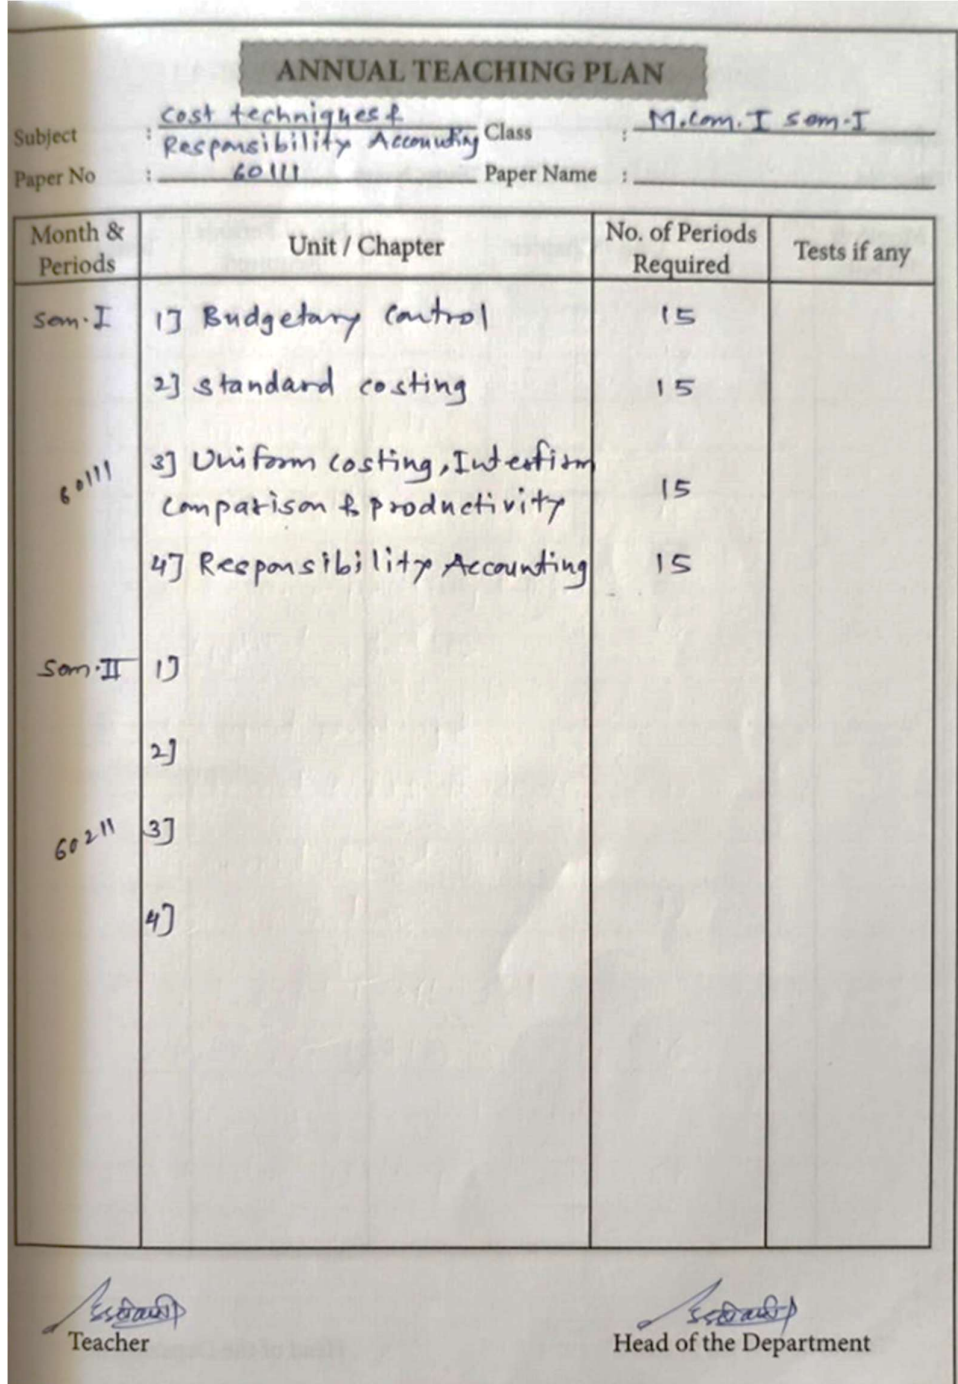 ANNUAL TEACHING PLAN
Subject : Cost techniques & Responsibility Accounting Class : M.com. I sem-I
Paper No : 60111 Paper Name :
Month & Periods Unit / Chapter No. of Periods Required Tests if any
sem-I 1] Budgetary Control 15
2] standard costing 15
60111 3] Uniform costing, Interfirm
comparison & productivity 15
4] Responsibility Accounting 15
Sem-II 1]
2]
60211 3]
4]
Teacher Head of the Department